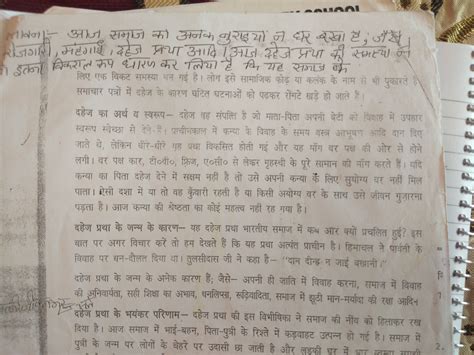 SCHOOL
आज समाज को अनेक बुराइयों ने घेर रखा है, जैसे
महंगाई, दहेज प्रथा आदि। आज दहेज प्रथा की समस्या ने
इतना विकराल रूप धारण कर लिया है कि यह समाज के
लिए एक विकट समस्या बन गई है। लोग इसे सामाजिक कोढ़ या कलंक के नाम से भी पुकारते हैं
समाचार पत्रों में दहेज के कारण घटित घटनाओं को पढ़कर रोंगटे खड़े हो जाते हैं।
दहेज का अर्थ व स्वरूप– दहेज वह संपत्ति है जो माता-पिता अपनी बेटी को विवाह में उपहार
स्वरूप स्वेच्छा से देते हैं। प्राचीनकाल में कन्या के विवाह के समय वस्त्र आभूषण आदि दान दिए
जाते थे, लेकिन धीरे-धीरे यह प्रथा विकसित होती गई और यह माँग वर पक्ष की ओर से होने
लगी। वर पक्ष कार, टी०वी०, फ्रिज, ए०सी० से लेकर गृहस्थी के पूरे सामान की माँग करते हैं। यदि
कन्या का पिता दहेज देने में सक्षम नहीं है तो उसे अपनी कन्या के लिए सुयोग्य वर नहीं मिल
पाता। ऐसी दशा में या तो वह कुँवारी रहती है या किसी अयोग्य वर के साथ उसे जीवन गुजारना
पड़ता है। आज कन्या की श्रेष्ठता का कोई महत्व नहीं रह गया है।
दहेज प्रथा के जन्म के कारण– यह दहेज प्रथा भारतीय समाज में कब और क्यों प्रचलित हुई? इस
बात पर अगर विचार करें तो हम देखते हैं कि यह प्रथा अत्यंत प्राचीन है। हिमाचल ने पार्वती के
विवाह पर धन-दौलत दिया था। तुलसीदास जी ने कहा है– "दान दीन्ह न जाई बखानी।"
दहेज प्रथा के जन्म के अनेक कारण हैं; जैसे– अपनी ही जाति में विवाह करना, समाज में विवाह
की अनिवार्यता, सही शिक्षा का अभाव, धनलिप्सा, रूढ़िवादिता, समाज में झूठी मान-मर्यादा की रक्षा आदि।
दहेज प्रथा के भयंकर परिणाम– दहेज प्रथा की इस विभीषिका ने समाज की नींव को हिलाकर रख
दिया है। आज समाज में भाई-बहन, पिता-पुत्री के रिश्ते में कड़वाहट उत्पन्न हो गई है। समाज में
पुत्री के जन्म पर लोगों के चेहरे पर उदासी छा जाती है और लड़की